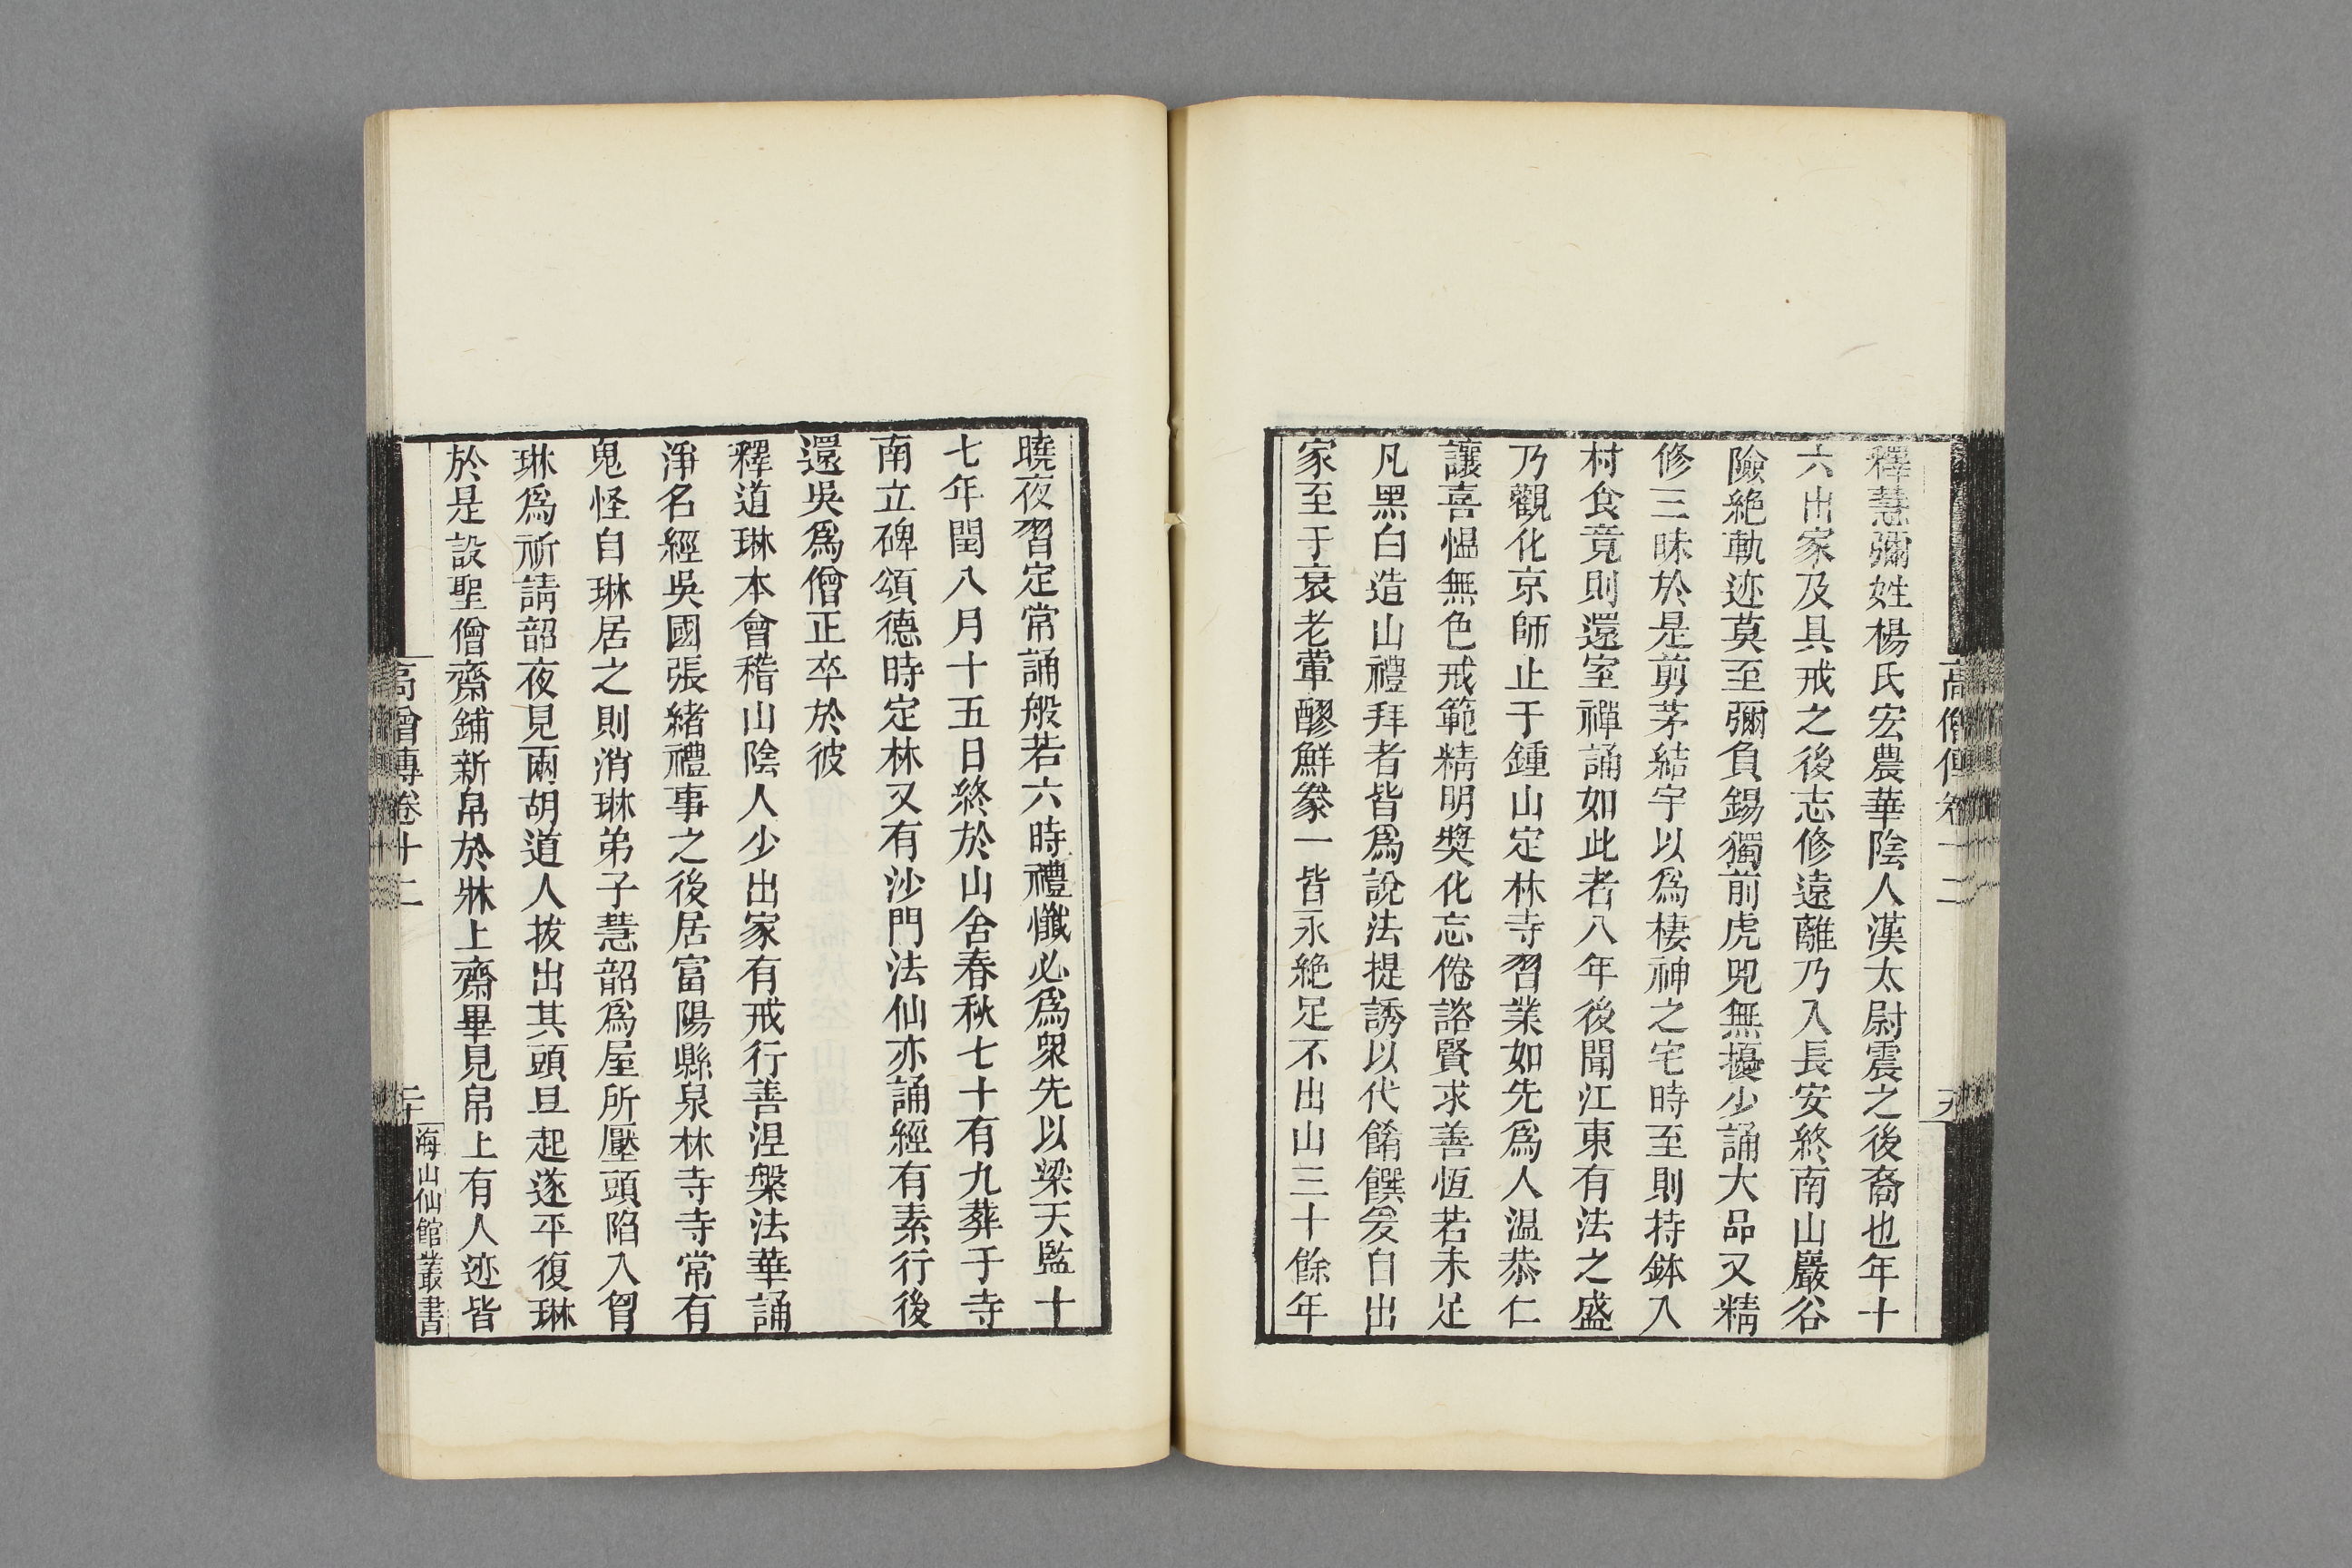 高僧傳卷十二
釋慧彌姓楊氏宏農華陰人漢太尉震之後裔也年十
六出家及具戒之後志修遠離乃入長安終南山巖谷
險絕軌迹莫至彌負錫獨前虎兕無擾少誦大品又精
修三昧於是剪茅結宇以爲棲神之宅時至則持鉢入
村食竟則還室禪誦如此者八年後聞江東有法之盛
乃觀化京師止于鍾山定林寺習業如先爲人溫恭仁
讓喜愠無色戒範精明奬化忘倦諮賢求善恆若未足
凡黑白造山禮拜者皆爲說法提誘以代餚饌爰自出
家至于衰老葷醪鮮豢一皆永絕足不出山三十餘年
曉夜習定常誦般若六時禮懺必爲衆先以梁天監十
七年閏八月十五日終於山舍春秋七十有九葬于寺
南立碑頌德時定林又有沙門法仙亦誦經有素行後
還吳爲僧正卒於彼
釋道琳本會稽山陰人少出家有戒行善涅槃法華誦
淨名經吳國張緒禮事之後居富陽縣泉林寺寺常有
鬼怪自琳居之則消琳弟子慧韶爲屋所壓頭陷入胷
琳爲祈請韶夜見兩胡道人拔出其頭旦起遂平復琳
於是設聖僧齋鋪新帛於牀上齋畢見帛上有人迹皆
高僧傳卷十二
二十
海山仙館叢書